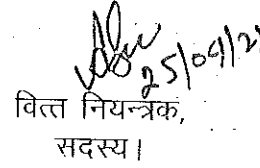 25/09/2
वित्त नियन्त्रक,
सदस्य।